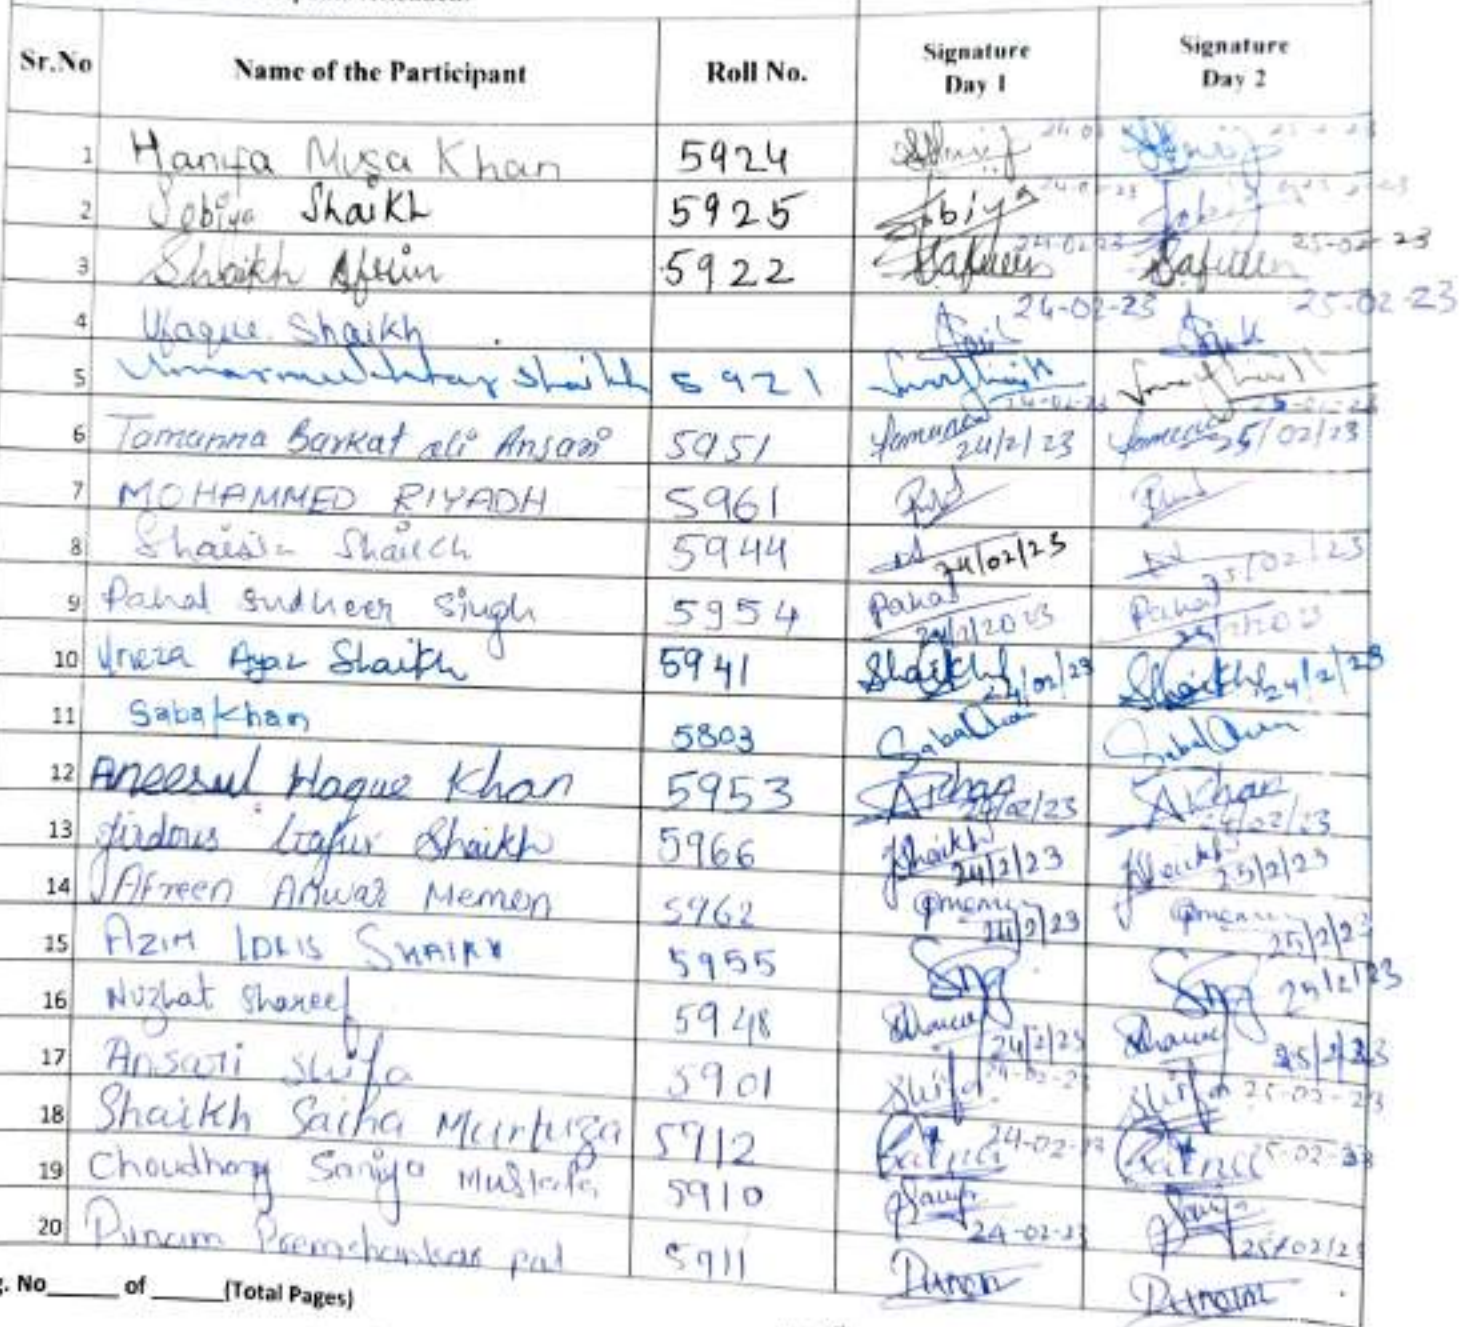 Sr.No Name of the Participant Roll No. Signature Day 1 Signature Day 2
1 Hanifa Musa Khan 5924
2 Sobiya Shaikh 5925 Sobiya 24-02-23
3 Shaikh Afrin 5922 Safreen 24-02-23 Safreen 25-02-23
4 Ufaque Shaikh 24-02-23 25-02-23
5 Umarmukhtar Shaikh 5921 24-02-23
6 Tamanna Barkat ali Ansari 5951 24/2/23 25/02/23
7 MOHAMMED RIYADH 5961
8 Shaikh 5944 24/02/23 25/02/23
9 Pahal Sudheer Singh 5954 Pahal Pahal
10 Uneza Ayaz Shaikh 5941 Shaikh 24/02/23 Shaikh 24/2/23
11 Saba Khan 5803 Saba Saba
12 Aneesul Haque Khan 5953 AKhan 24/02/23 AKhan 24/02/23
13 firdous Gafur Shaikh 5966 Shaikh 24/2/23 Shaikh 25/2/23
14 Afreen Anwar Memon 5962 24/2/23 25/2/23
15 AZIM IDRIS SHAIKH 5955 25/2/23
16 Nuzhat Shareef 5948 24/2/23 25/2/23
17 Ansari Shifa 5901 Shifa 24-02-23 Shifa 25-02-23
18 Shaikh Saiha Murtuza 5912 24-02-23 25-02-23
19 Choudhary Saniya Mustafa 5910 24-02-23 25/02/23
20 Punam Premshankar pal 5911 Punam Punam
No______ of ______(Total Pages)